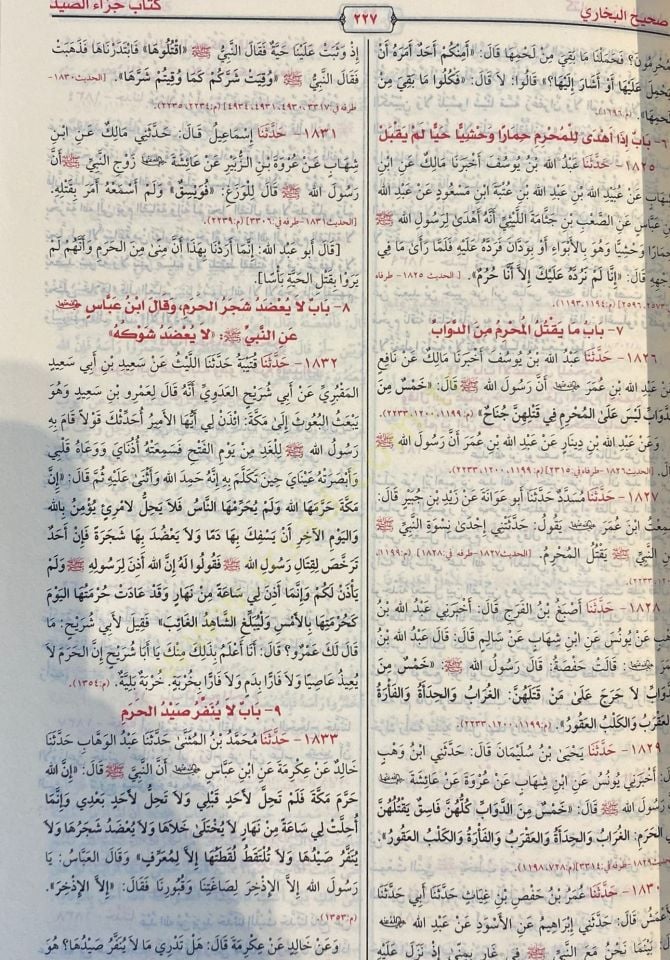 صحيح البخاري
٢٢٧
كتاب جزاء الصيد
مُحْرِمُونَ؟ فَحَمَلْنَا مَا بَقِيَ مِنْ لَحْمِهَا قَالَ: «أَمِنْكُمْ أَحَدٌ أَمَرَهُ أَنْ
يَحْمِلَ عَلَيْهَا أَوْ أَشَارَ إِلَيْهَا؟» قَالُوا: لَا قَالَ: «فَكُلُوا مَا بَقِيَ مِنْ
لَحْمِهَا». (م:١١٩٦).
٦- بَابُ إِذَا أَهْدَى لِلْمُحْرِمِ حِمَارًا وَحْشِيًّا حَيًّا لَمْ يَقْبَلْ
١٨٢٥- حَدَّثَنَا عَبْدُ الله بْنُ يُوسُفَ أَخْبَرَنَا مَالِكٌ عَنِ ابْنِ
شِهَابٍ عَنْ عُبَيْدِ الله بْنِ عَبْدِ الله بْنِ عُتْبَةَ ابْنِ مَسْعُودٍ عَنْ عَبْدِ الله
بْنِ عَبَّاسٍ عَنِ الصَّعْبِ بْنِ جَثَّامَةَ اللَّيْثِيِّ أَنَّهُ أَهْدَى لِرَسُولِ الله ﷺ
حِمَارًا وَحْشِيًّا وَهُوَ بِالأَبْوَاءِ أَوْ بِوَدَّانَ فَرَدَّهُ عَلَيْهِ فَلَمَّا رَأَى مَا فِي
وَجْهِهِ قَالَ: «إِنَّا لَمْ نَرُدَّهُ عَلَيْكَ إِلاَّ أَنَّا حُرُمٌ». [الحديث ١٨٢٥- طرفاه
٢٥٧٣، ٢٥٩٦] (م:١١٩٣، ١١٩٤).
٧- بَابُ مَا يَقْتُلُ الْمُحْرِمُ مِنَ الدَّوَابِّ
١٨٢٦- حَدَّثَنَا عَبْدُ الله بْنُ يُوسُفَ أَخْبَرَنَا مَالِكٌ عَنْ نَافِعٍ
عَنْ عَبْدِ الله بْنِ عُمَرَ أَنَّ رَسُولَ الله ﷺ قَالَ: «خَمْسٌ مِنَ
الدَّوَابِّ لَيْسَ عَلَى الْمُحْرِمِ فِي قَتْلِهِنَّ جُنَاحٌ». (م:١١٩٩، ١٢٠٠، ٢٢٣٣).
وَعَنْ عَبْدِ الله بْنِ دِينَارٍ عَنْ عَبْدِ الله بْنِ عُمَرَ أَنَّ رَسُولَ الله ﷺ
قَالَ. [الحديث ١٨٢٦- طرفه في: ٣٣١٥] (م:١١٩٩، ١٢٠٠، ٢٢٣٣).
١٨٢٧- حَدَّثَنَا مُسَدَّدٌ حَدَّثَنَا أَبُو عَوَانَةَ عَنْ زَيْدِ بْنِ جُبَيْرٍ قَالَ:
سَمِعْتُ ابْنَ عُمَرَ يَقُولُ: حَدَّثَتْنِي إِحْدَى نِسْوَةِ النَّبِيِّ ﷺ
عَنِ النَّبِيِّ ﷺ يَقْتُلُ الْمُحْرِمُ. [الحديث ١٨٢٧- طرفه في: ١٨٢٨] (م:١١٩٩،
٢٢٣٣).
١٨٢٨- حَدَّثَنَا أَصْبَغُ بْنُ الْفَرَجِ قَالَ: أَخْبَرَنِي عَبْدُ الله بْنُ
وَهْبٍ عَنْ يُونُسَ عَنِ ابْنِ شِهَابٍ عَنْ سَالِمٍ قَالَ: قَالَ عَبْدُ الله بْنُ
قَالَتْ حَفْصَةُ: قَالَ رَسُولُ الله ﷺ: «خَمْسٌ مِنَ
الدَّوَابِّ لاَ حَرَجَ عَلَى مَنْ قَتَلَهُنَّ: الْغُرَابُ وَالْحِدَأَةُ وَالْفَأْرَةُ
وَالْعَقْرَبُ وَالْكَلْبُ الْعَقُورُ». (م:١١٩٩، ١٢٠٠، ٢٢٣٣).
١٨٢٩- حَدَّثَنَا يَحْيَى بْنُ سُلَيْمَانَ قَالَ: حَدَّثَنِي ابْنُ وَهْبٍ
قَالَ: أَخْبَرَنِي يُونُسُ عَنِ ابْنِ شِهَابٍ عَنْ عُرْوَةَ عَنْ عَائِشَةَ
أَنَّ رَسُولَ الله ﷺ قَالَ: «خَمْسٌ مِنَ الدَّوَابِّ كُلُّهُنَّ فَاسِقٌ يَقْتُلُهُنَّ
فِي الْحَرَمِ: الْغُرَابُ وَالْحِدَأَةُ وَالْعَقْرَبُ وَالْفَأْرَةُ وَالْكَلْبُ الْعَقُورُ».
١٨٢٩- طرفه في: ٣٣١٤] (م:٧٢٨، ١١٩٨).
١٨٣٠- حَدَّثَنَا عُمَرُ بْنُ حَفْصِ بْنِ غِيَاثٍ حَدَّثَنَا أَبِي حَدَّثَنَا
الأَعْمَشُ قَالَ: حَدَّثَنِي إِبْرَاهِيمُ عَنِ الأَسْوَدِ عَنْ عَبْدِ الله
قَالَ: بَيْنَمَا نَحْنُ مَعَ النَّبِيِّ ﷺ فِي غَارٍ بِمِنًى إِذْ نَزَلَ عَلَيْهِ
إِذْ وَثَبَتْ عَلَيْنَا حَيَّةٌ فَقَالَ النَّبِيُّ ﷺ «اقْتُلُوهَا» فَابْتَدَرْنَاهَا فَذَهَبَتْ
فَقَالَ النَّبِيُّ ﷺ «وُقِيَتْ شَرَّكُمْ كَمَا وُقِيتُمْ شَرَّهَا». [الحديث ١٨٣٠-
طرفه في: ٣٣١٧، ٤٩٣٠، ٤٩٣١، ٤٩٣٤] (م:٢٢٣٤، ٢٢٣٥).
١٨٣١- حَدَّثَنَا إِسْمَاعِيلُ قَالَ: حَدَّثَنِي مَالِكٌ عَنِ ابْنِ
شِهَابٍ عَنْ عُرْوَةَ بْنِ الزُّبَيْرِ عَنْ عَائِشَةَ زَوْجِ النَّبِيِّ ﷺ أَنَّ
رَسُولَ الله ﷺ قَالَ لِلْوَزَغِ: «فُوَيْسِقٌ» وَلَمْ أَسْمَعْهُ أَمَرَ بِقَتْلِهِ.
[الحديث ١٨٣١- طرفه في: ٣٣٠٦] (م:٢٢٣٩).
[قَالَ أَبُو عَبْد الله: إِنَّمَا أَرَدْنَا بِهَذَا أَنَّ مِنًى مِنَ الحَرَمِ وَأَنَّهُمْ لَمْ
يَرَوْا بِقَتْلِ الْحَيَّةِ بَأْسًا].
٨- بَابٌ لاَ يُعْضَدُ شَجَرُ الحَرَمِ، وَقَالَ ابْنُ عَبَّاسٍ
عَنِ النَّبِيِّ ﷺ: «لاَ يُعْضَدُ شَوْكُهُ»
١٨٣٢- حَدَّثَنَا قُتَيْبَةُ حَدَّثَنَا اللَّيْثُ عَنْ سَعِيدِ بْنِ أَبِي سَعِيدٍ
المَقْبُرِيِّ عَنْ أَبِي شُرَيْحٍ العَدَوِيِّ أَنَّهُ قَالَ لِعَمْرِو بْنِ سَعِيدٍ وَهُوَ
يَبْعَثُ الْبُعُوثَ إِلَى مَكَّةَ: ائْذَنْ لِي أَيُّهَا الأَمِيرُ أُحَدِّثْكَ قَوْلاً قَامَ بِهِ
رَسُولُ الله ﷺ لِلْغَدِ مِنْ يَوْمِ الْفَتْحِ فَسَمِعَتْهُ أُذُنَايَ وَوَعَاهُ قَلْبِي
وَأَبْصَرَتْهُ عَيْنَايَ حِينَ تَكَلَّمَ بِهِ إِنَّهُ حَمِدَ الله وَأَثْنَى عَلَيْهِ ثُمَّ قَالَ: «إِنَّ
مَكَّةَ حَرَّمَهَا الله وَلَمْ يُحَرِّمْهَا النَّاسُ فَلاَ يَحِلُّ لامْرِئٍ يُؤْمِنُ بِالله
وَالْيَوْمِ الآخِرِ أَنْ يَسْفِكَ بِهَا دَمًا وَلاَ يَعْضُدَ بِهَا شَجَرَةً فَإِنْ أَحَدٌ
تَرَخَّصَ لِقِتَالِ رَسُولِ الله ﷺ فَقُولُوا لَهُ إِنَّ الله أَذِنَ لِرَسُولِهِ ﷺ وَلَمْ
يَأْذَنْ لَكُمْ وَإِنَّمَا أَذِنَ لِي سَاعَةً مِنْ نَهَارٍ وَقَدْ عَادَتْ حُرْمَتُهَا الْيَوْمَ
كَحُرْمَتِهَا بِالأَمْسِ وَلْيُبَلِّغِ الشَّاهِدُ الْغَائِبَ» فَقِيلَ لأَبِي شُرَيْحٍ: مَا
قَالَ لَكَ عَمْرٌو؟ قَالَ: أَنَا أَعْلَمُ بِذَلِكَ مِنْكَ يَا أَبَا شُرَيْحٍ إِنَّ الْحَرَمَ لاَ
يُعِيذُ عَاصِيًا وَلاَ فَارًّا بِدَمٍ وَلاَ فَارًّا بِخُرْبَةٍ. خُرْبَةٌ بَلِيَّةٌ. (م:١٣٥٤).
٩- بَابٌ لاَ يُنَفَّرُ صَيْدُ الحَرَمِ
١٨٣٣- حَدَّثَنَا مُحَمَّدُ بْنُ الْمُثَنَّى حَدَّثَنَا عَبْدُ الْوَهَّابِ حَدَّثَنَا
خَالِدٌ عَنْ عِكْرِمَةَ عَنِ ابْنِ عَبَّاسٍ أَنَّ النَّبِيَّ ﷺ قَالَ: «إِنَّ الله
حَرَّمَ مَكَّةَ فَلَمْ تَحِلَّ لأَحَدٍ قَبْلِي وَلاَ تَحِلُّ لأَحَدٍ بَعْدِي وَإِنَّمَا
أُحِلَّتْ لِي سَاعَةً مِنْ نَهَارٍ لاَ يُخْتَلَى خَلاَهَا وَلاَ يُعْضَدُ شَجَرُهَا وَلاَ
يُنَفَّرُ صَيْدُهَا وَلاَ تُلْتَقَطُ لُقَطَتُهَا إِلاَّ لِمُعَرِّفٍ» وَقَالَ العَبَّاسُ: يَا
رَسُولَ الله إِلاَّ الإِذْخِرَ لِصَاغَتِنَا وَقُبُورِنَا فَقَالَ: «إِلاَّ الإِذْخِرَ».
(م:١٣٥٣).
وَعَنْ خَالِدٍ عَنْ عِكْرِمَةَ قَالَ: هَلْ تَدْرِي مَا لاَ يُنَفَّرُ صَيْدُهَا؟ هُوَ